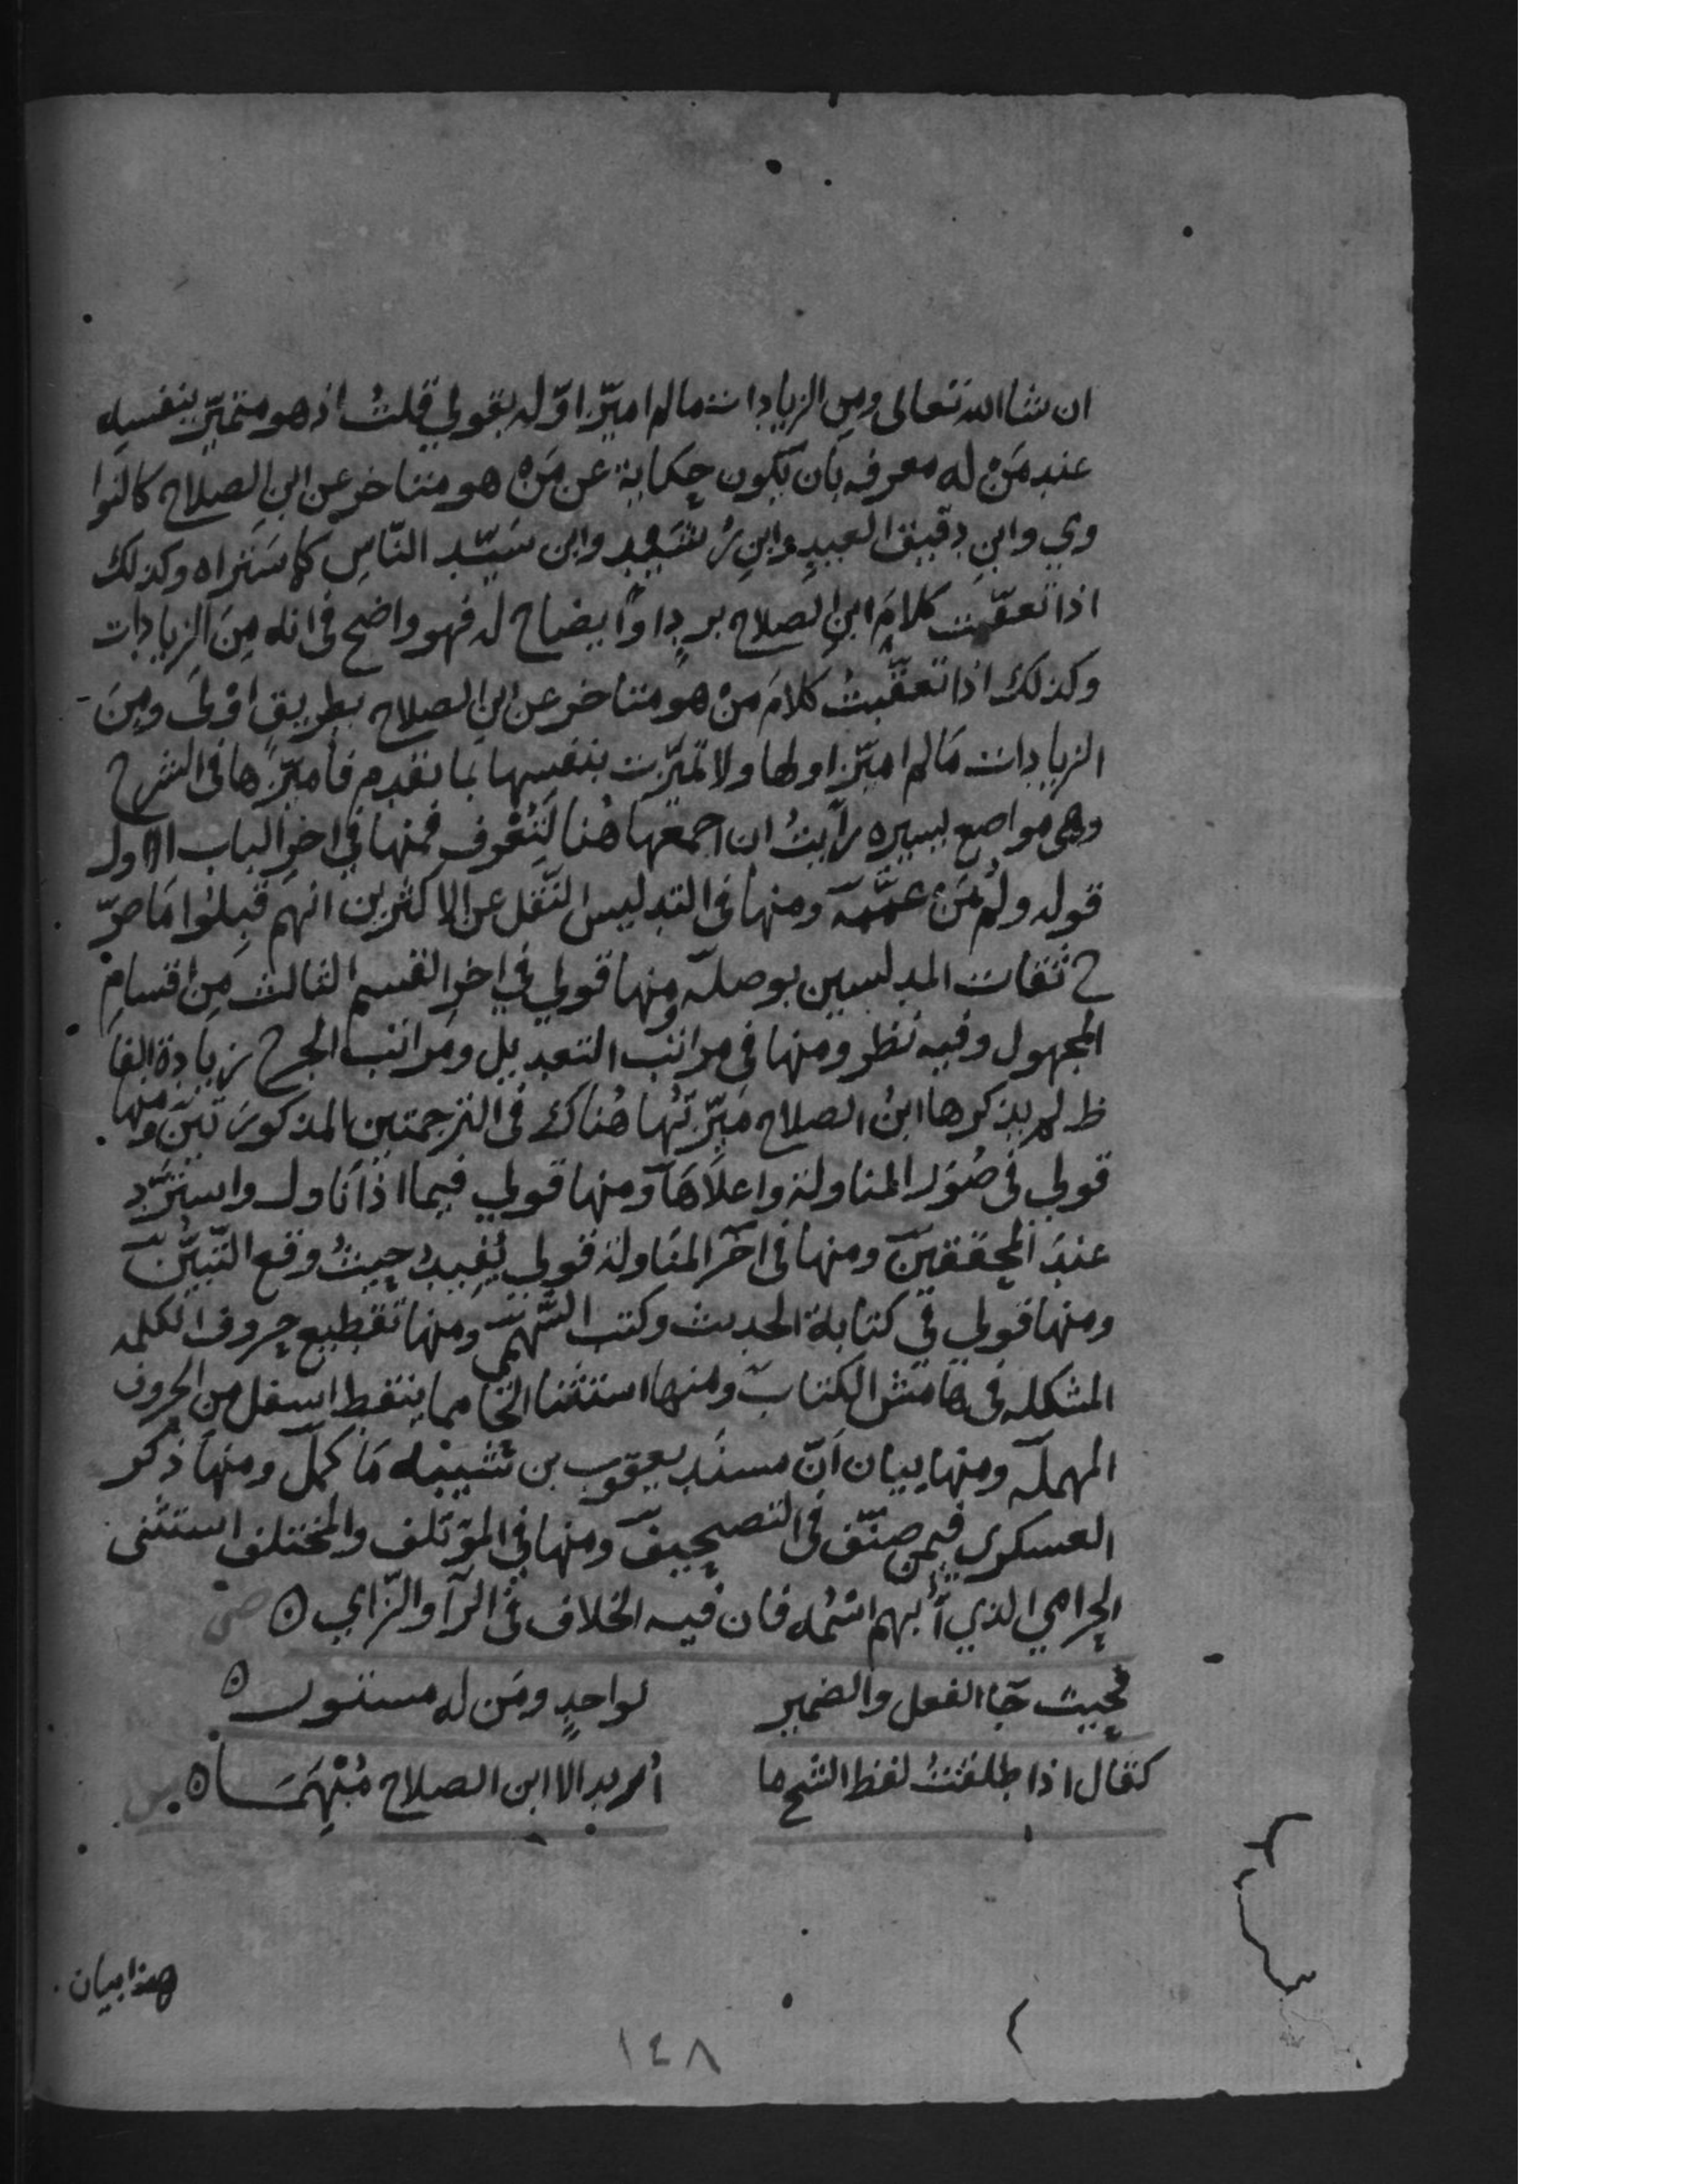 ان شا الله تعالى ومن الزيادات مالم اميّز اوّله بقولي قلتُ اذ هو متميّز بنفسه
عند مَنْ له معرفه بَان يكون حكاية عن مَنْ هو متاخر عن ابن الصلاح كالنوا
وي وابن دقيق العيد وابن رُشَيد وابن سَيّد النّاس كما سَتَراه وكذلك
اذا تعقّبت كلامَ ابن الصلاح بردٍ او ايضاح له فهو واضح في انه مِنَ الزيادات
وكذلك اذا تعقّبتُ كلامَ مَنْ هو متاخر عن ابن الصلاح بطريق اوْلىَ ومِنَ
الزيادات مَالم اميّز اولها ولا تميّزت بنفسها بما تقدم فأميّزها في الشرح
وهى مواضع يسيره رأيتُ ان اجمعها هُنا لتُعْرف فمنها في اخر الباب الاول
قوله ولُم مَنْ عمّمه ومنها في التدليس النّقل عن الاكثرين انهم قَبِلوا مَا صرّ
ح ثقات المدلسين بوصله ومنها قولي في اخر القسم الثالث مِن اقسامِ
المجهول وفيه نظر ومنها في مراتب التعديل ومَراتب الجرح زيادة الفا
ظ لم يذكرها ابنُ الصلاح مَيّزتُها هُناك في الترجمتين المذكورتين ومنها
قولي في صُوَر المناولة واعلاهَا ومنها قولي فيما اذا نَاول واستَرّد
عندَ المحققين ومنها في اخر المنَاولة قولي يُفيدُ حيثُ وقع التّبيُّن
ومنها قولي في كتابة الحديث وكتب السَّهمي ومنها تقطيع حروف الكلمه
المشكله في هامش الكتاب ومنها استثنا الحا مما ينقط اسفل من الحروف
المهمله ومنها بيان اَنّ مسنَد يعقوب بن شيبه مَا كمل ومنها ذكر
العسكري فيمن صنّف في التصحيف ومنها في الموتلف والمختلف استثنى
الحرامي الذي أُبهم اسْمُه فان فيه الخلاف في الرآ والزّاي ه ص
فحيث جَا الفعل والضمير لواحدٍ ومَن له مستور ه
كقال او اطلقتُ لفظ الشيخ ما أُريد الا ابن الصلاح مُبْهِمَا ه
هذا بيان
١٤٨